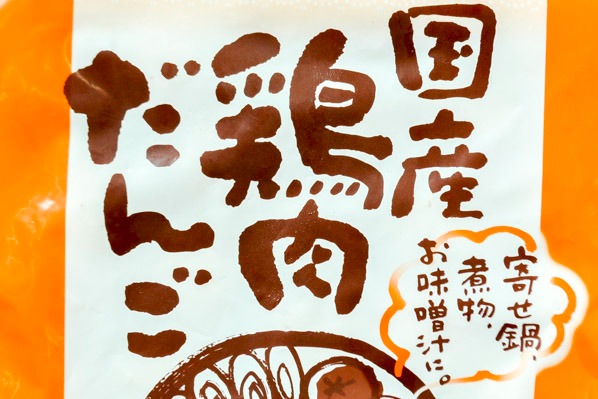 国産
鶏肉
だんご
寄せ鍋、
煮物、
お味噌汁に。